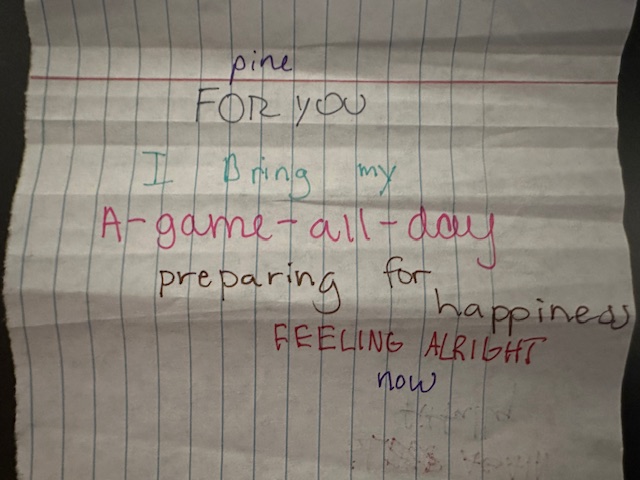 pine
FOR YOU
I Bring my
A-game-all-day
preparing for
happiness
FEELING ALRIGHT
now